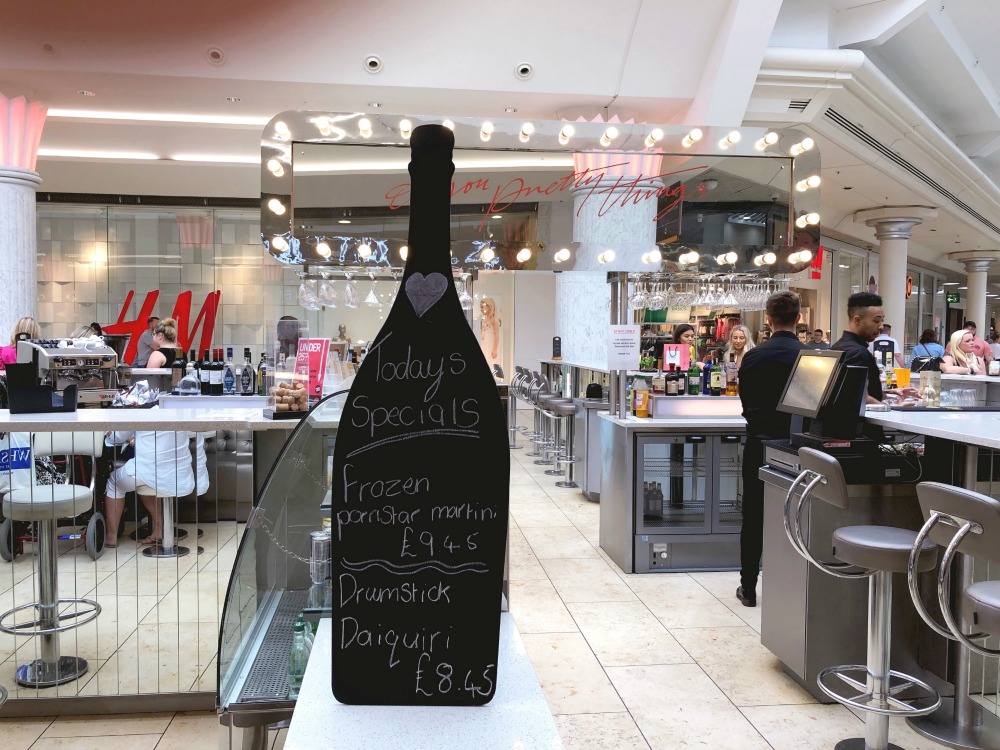 pretty things
H&M
UNDER
25?
Today's
Specials
Frozen
pornstar martini
£9 45
Drumstick
Daiquiri
£8.45